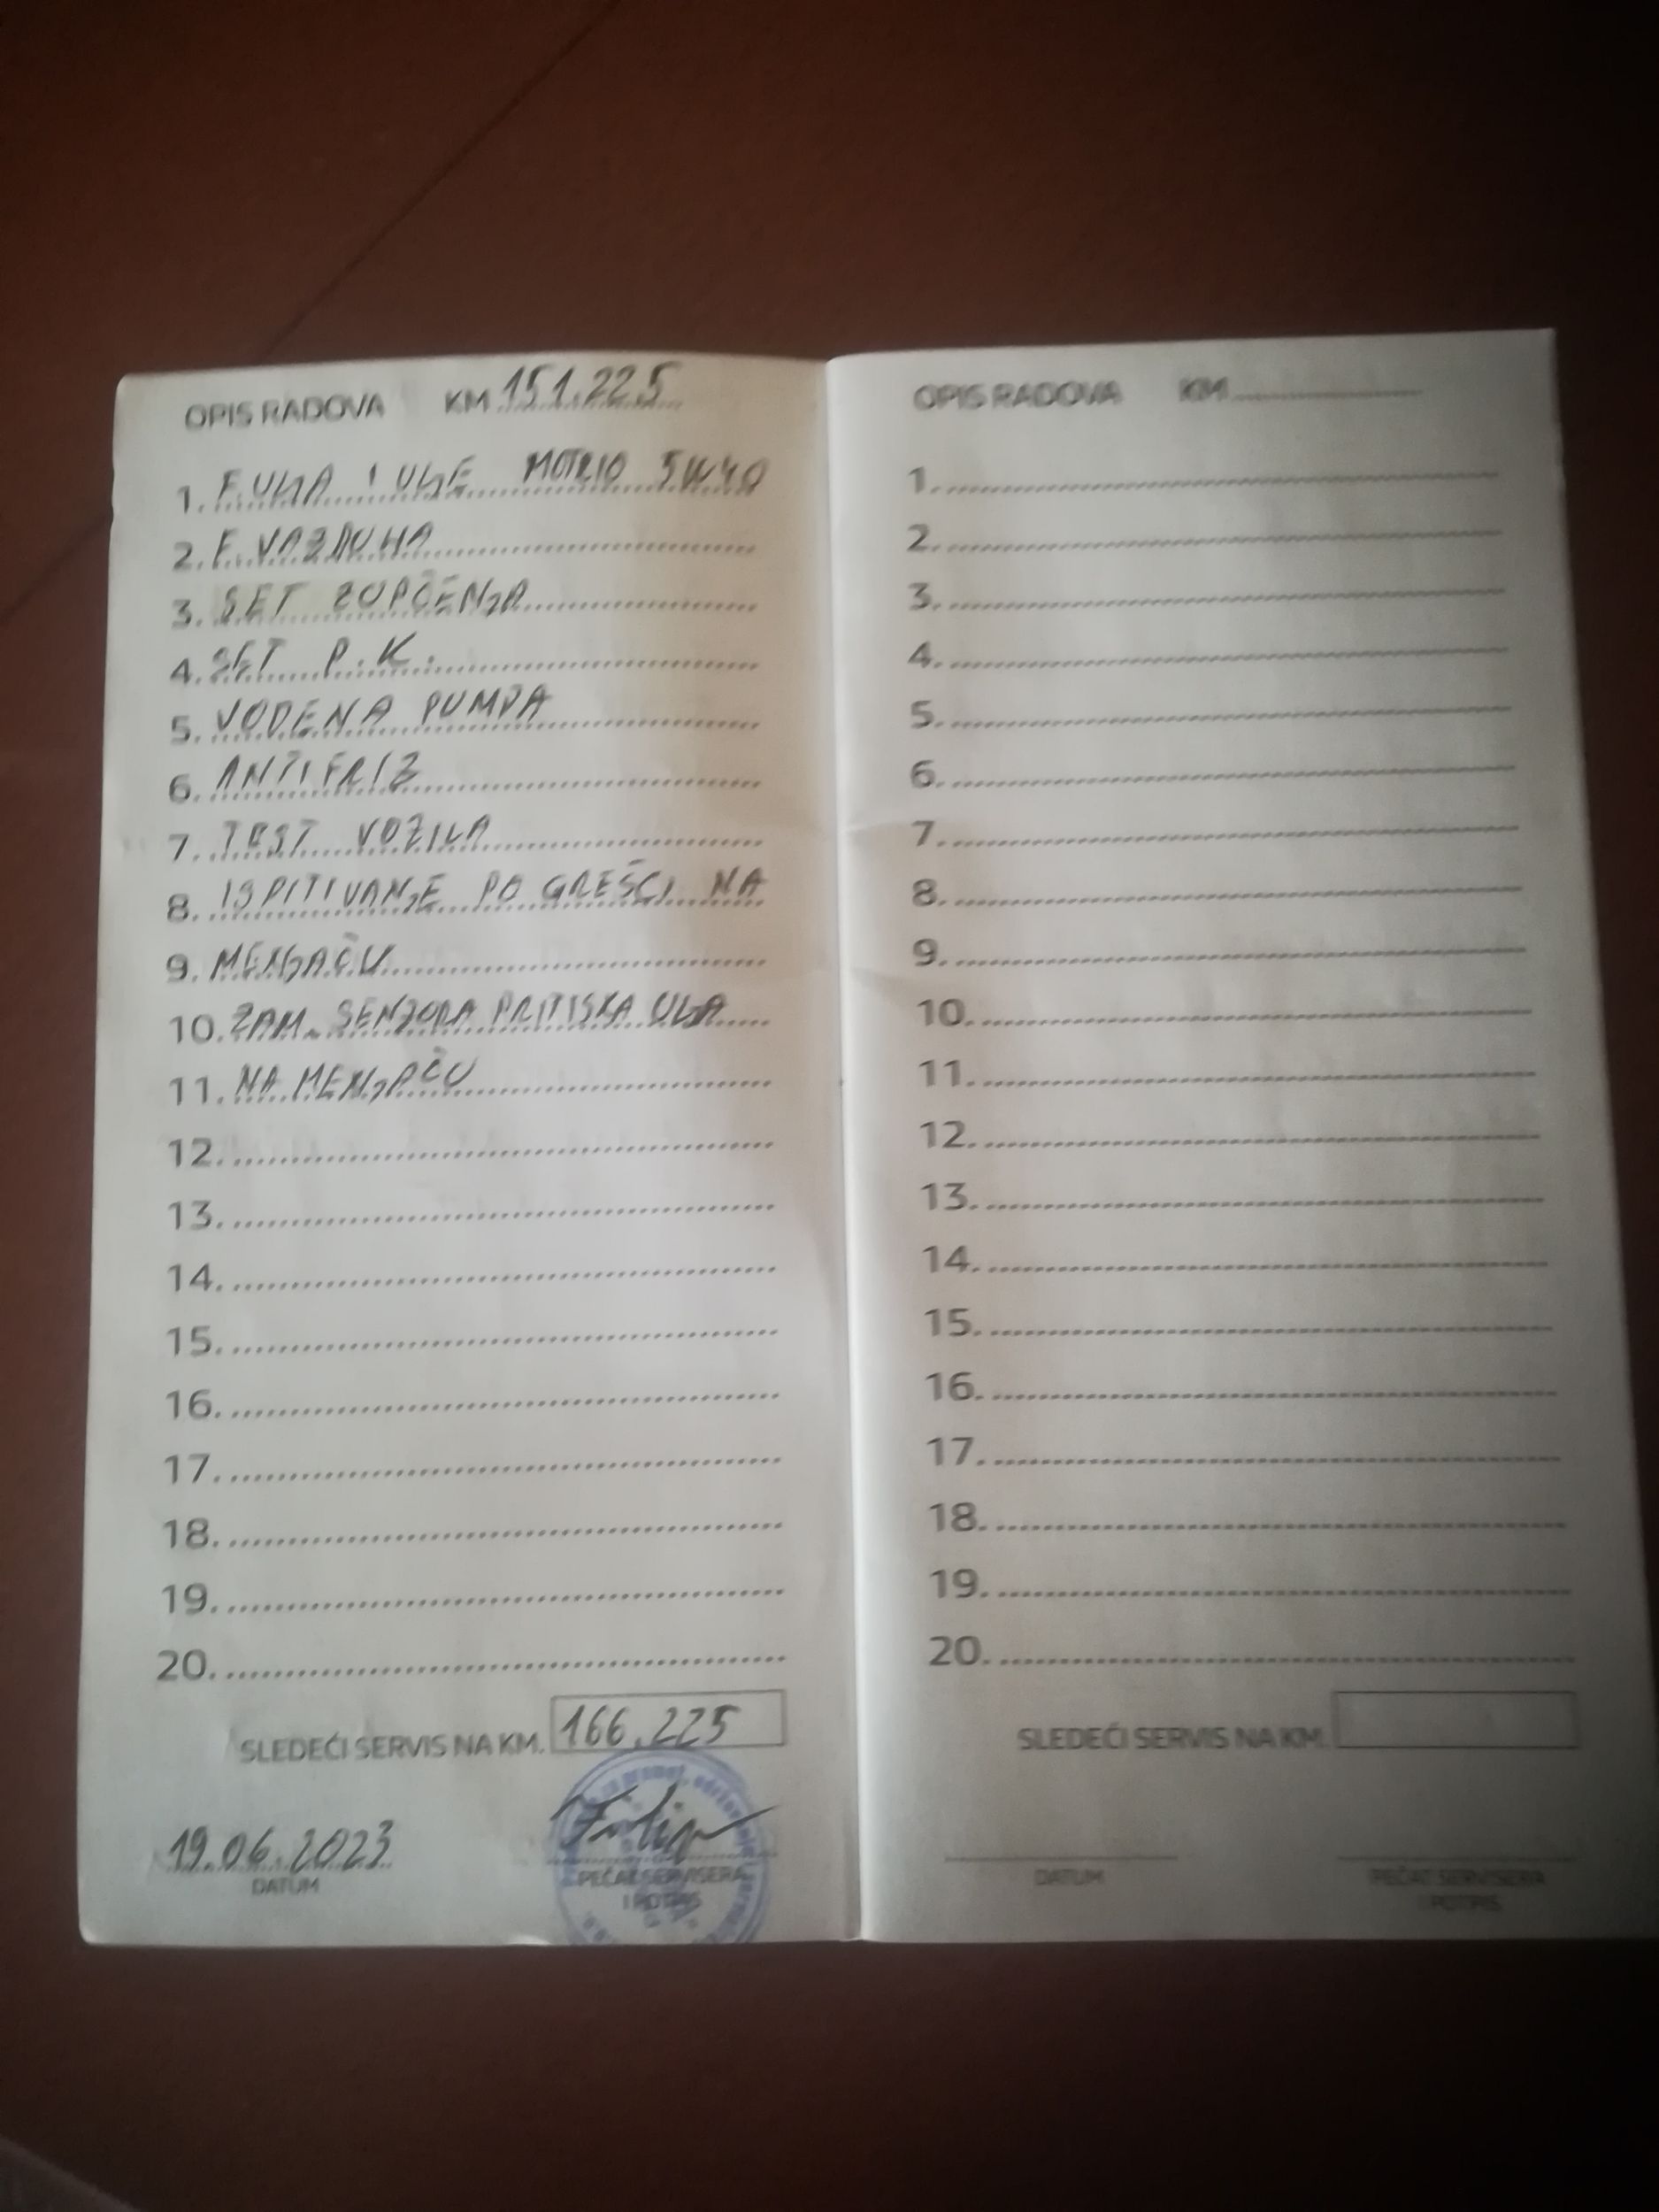 OPIS RADOVA KM 151.225
1. F. ULJA I ULJE MOTRIO 5W40
2. F. VAZDUHA
3. SET ZUPČENJA
4. SET P.K.
5. VODENA PUMPA
6. ANTIFRIZ
7. TEST VOZILA
8. ISPITIVANJE PO GREŠCI NA
9. MENJAČU
10. ZAM. SENZORA PRITISKA ULJA
11. NA MENJAČU
12.
13.
14.
15.
16.
17.
18.
19.
20.
SLEDEĆI SERVIS NA KM. 166.225
19.06.2023
DATUM
Filip
PEČAT SERVISERA
I POTPIS
OPIS RADOVA KM
1.
2.
3.
4.
5.
6.
7.
8.
9.
10.
11.
12.
13.
14.
15.
16.
17.
18.
19.
20.
SLEDEĆI SERVIS NA KM.
DATUM
PEČAT SERVISERA
I POTPIS